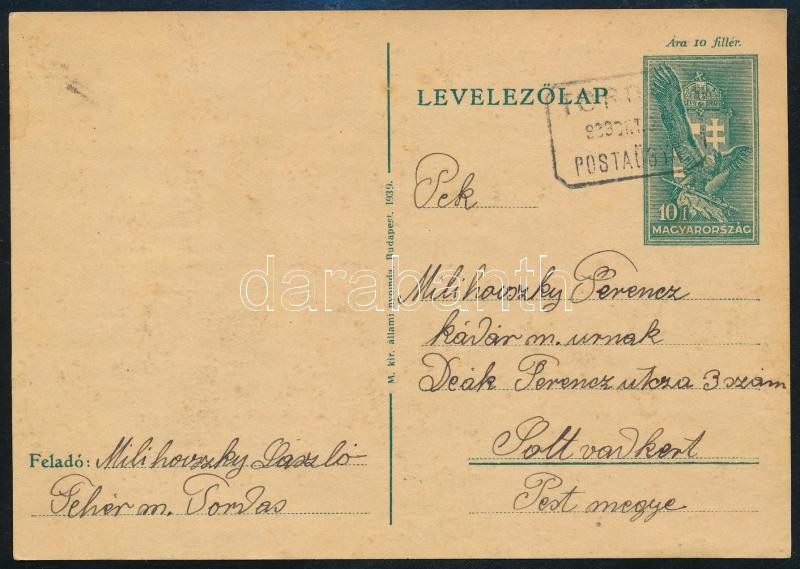 Ára 10 fillér.
LEVELEZŐLAP
POSTAÜGY
10 f
MAGYARORSZÁG
Pek
Milihovszky Ferencz
kádár m. urnak
Deák Ferencz utcza 3 szám
Soltvadkert
Pest megye
M. kir. állami nyomda, Budapest. 1939.
Feladó: Milihovszky László
Fehér m. Tordas
darabanth